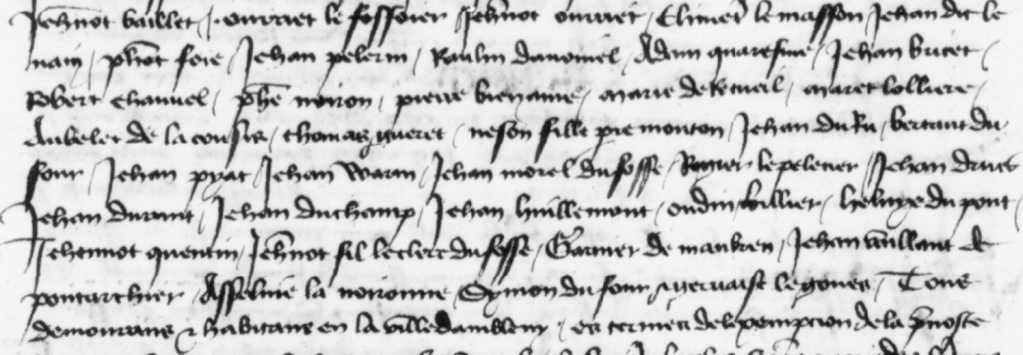 Jehnot vaillet / ouvriet le fossoier / Jehnot ouvriet / Clinet le masson Jehan dit le
nain / phot foie / Jehan pelerin / Raulin danoinel / Adam quaresme / Jehan bucet /
Robert chanuel / phe noiron / pierre bienaime / marie de retueil / maret lolliere /
Aubelet de la / thomas gueret / neson fille pre monton / Jehan du Ru / bertaut du
four / Jehan pyat / Jehan Warin / Jehan morel du fosse / Regnier le peletier / Jehan drues
Jehan durant / Jehan duchamp / Jehan huillemont / oudin / heluye du pont /
Jehennot quentin / Jehnot fil le clerc du fosse / Garnier de / Jehan vaillant de
pontarchier / Asseline la noironne Symon du four / gervaise le goues / Tous
demourans & habitans en la ville dambleny / es termes de la de la prevoste